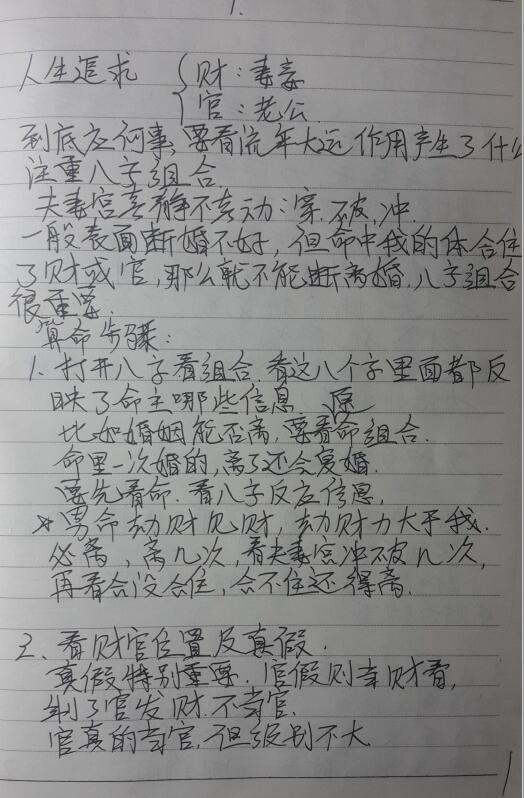 1.
人生追求 { 财：妻妾
官：老公
到底应何事，要看流年大运作用产生了什么
注重八字组合.
夫妻宫喜静不喜动：穿、破、冲.
一般表面断婚不好，但命中我的体合住
了财或官，那么就不能断离婚.八字组合
很重要.
算命步骤：
1. 打开八字看组合.看这八个字里面都反
映了命主哪些信息
比如婚姻能否离，要看命组合.
命里一次婚的，离了还会复婚.
要先看命.看八字反应信息，
* 男命劫财见财，劫财力大于我.
必离，离几次，看夫妻宫冲破几次，
再看合没合住，合不住还得离.
2、看财官位置及真假.
真假特别重要.官假则当财看，
制了官发财.不当官.
官真的当官.但级别不大